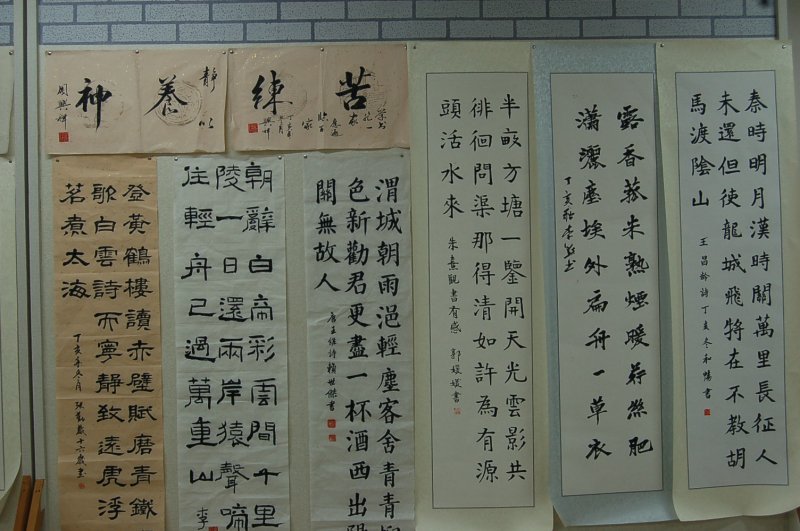 秦時明月漢時關萬里長征人
未還但使龍城飛將在不教胡
馬渡陰山
王昌齡詩丁亥冬和暘書
露香菰米熟煙暖荇絲肥
瀟灑塵埃外扁舟一草衣
半畝方塘一鑒開天光雲影共
徘徊問渠那得清如許為有源
頭活水來
朱熹觀書有感
書
苦練
靜以
養神
渭城朝雨浥輕塵客舍青青柳
色新勸君更盡一杯酒西出陽
關無故人
唐王維詩賴世傑書
朝辭白帝彩雲間千里
陵一日還兩岸猿聲啼
住輕舟已過萬重山
李
登黃鶴樓讀赤壁賦磨青鐵
歌白雲詩而寧靜致遠虎浮
茗煮太海
丁亥年冬月
十六歲書